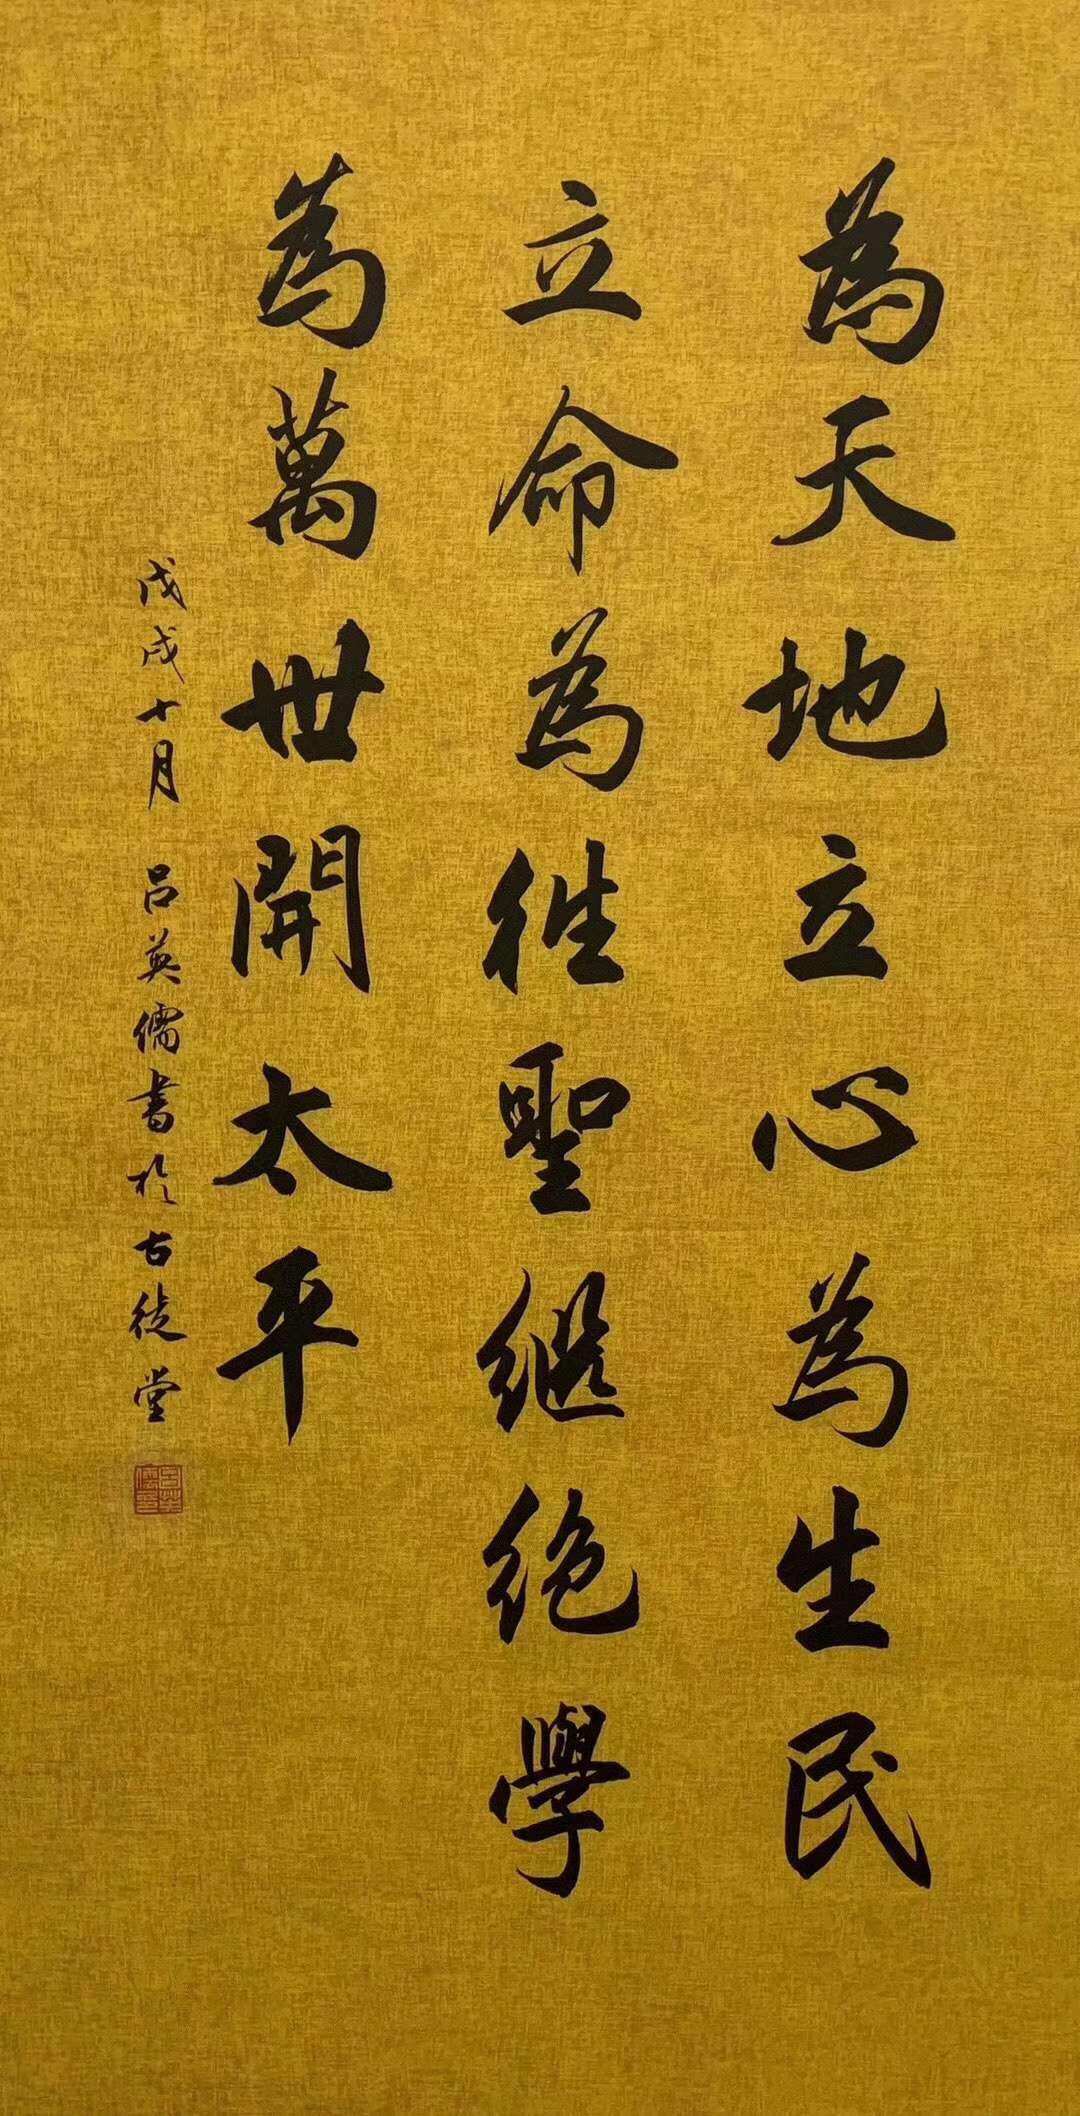 為天地立心為生民
立命為往聖繼絕學
為萬世開太平
戊戌十月 呂英儒書於古徒堂